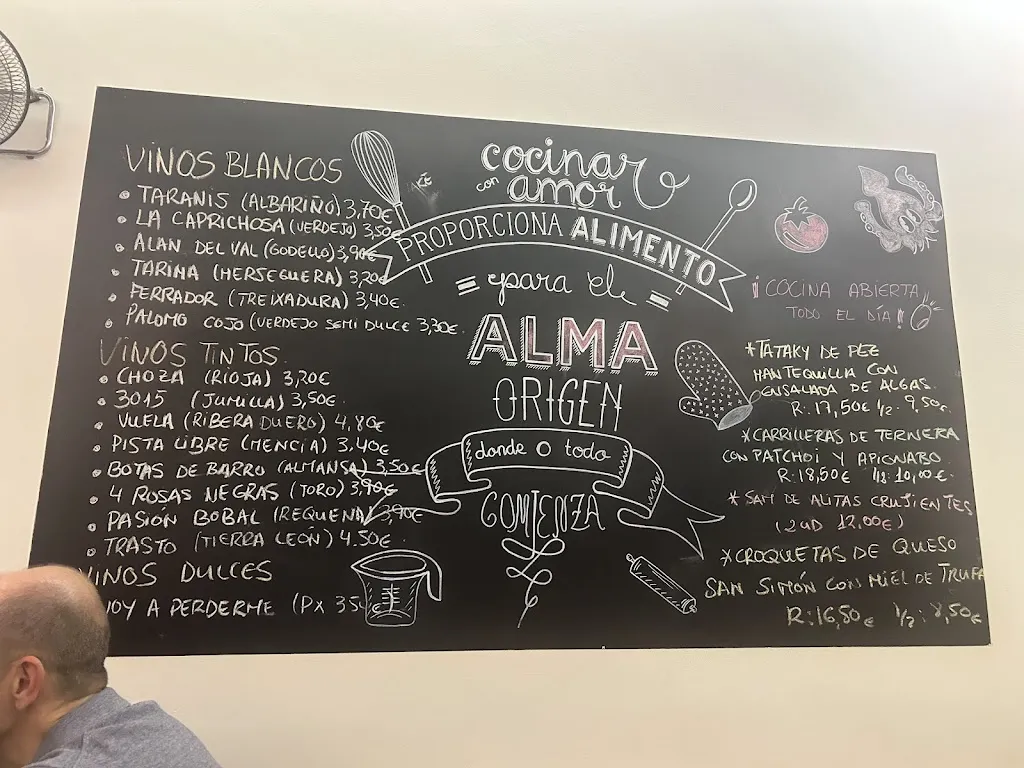 VINOS BLANCOS
• TARANIS (ALBARIÑO) 3,70€
• LA CAPRICHOSA (VERDEJO) 3,50€
• ALAN DEL VAL (GODELLO) 3,90€
• TARIMA (MERSEGUERA) 3,20€
• FERRADOR (TREIXADURA) 3,40€
• PALOMO COJO (VERDEJO SEMI DULCE 3,30€.
VINOS TINTOS
• CHOZA (RIOJA) 3,20€
• 3015 (JUMILLA) 3,50€.
• VUELA (RIBERA DUERO) 4,80€
• PISTA LIBRE (MENCIA) 3.40€
• BOTAS DE BARRO (ALMANSA) 3,50€
• 4 ROSAS NEGRAS (TORO) 3,90€
• PASIÓN BOBAL (REQUENA) 3,90€
• TRASTO (TIERRA LEÓN) 4.50€
VINOS DULCES
VOY A PERDERME (PX 3,5
cocinar
con amor
PROPORCIONA ALIMENTO
= para el =
ALMA
ORIGEN
donde o todo
COMIENZA
¡COCINA ABIERTA
TODO EL DÍA!
*TATAKY DE PEZ
MANTEQUILLA CON
ENSALADA DE ALGAS.
R: 17,50€ 1/2: 9,50€
*CARRILLERAS DE TERNERA
CON PATCHOI Y APIONABO
R: 18,50€ 1/2: 10,00€.
* SAM DE ALITAS CRUJIENTES
(2UD 12,00€)
*CROQUETAS DE QUESO
SAN SIMÓN CON MIEL DE TRUFA
R: 16,50€ 1/2: 8,50€